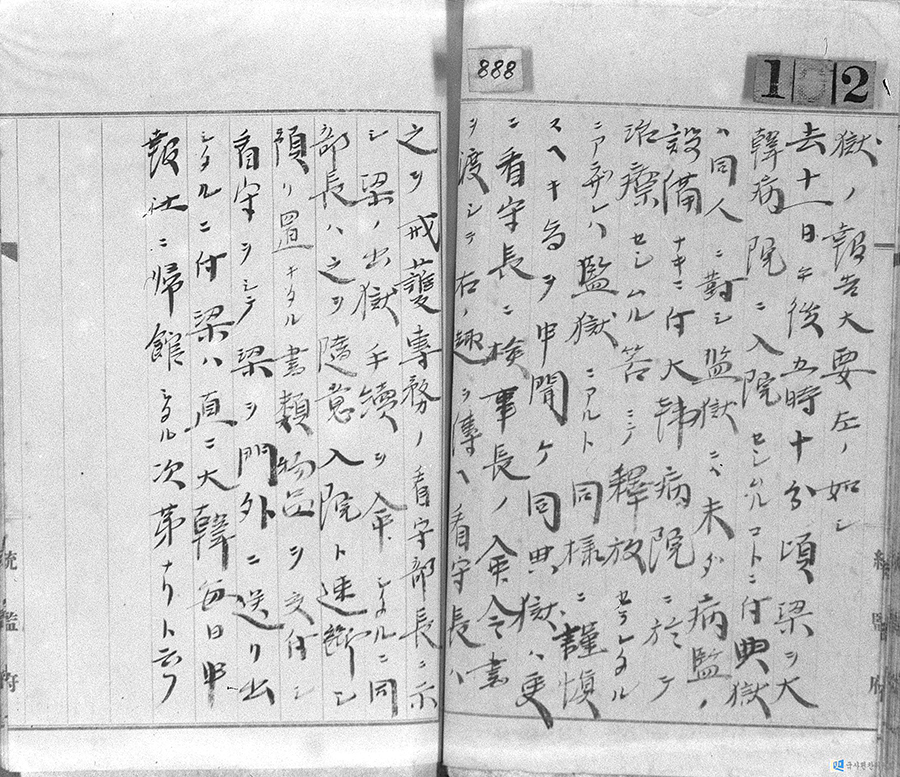 888
1 0 2
獄ノ報告大要左ノ如シ
去十一日午後五時十分頃梁ヲ大
韓病院ニ入院セシムルコトニ付典獄
ハ同人ニ対シ監獄ニハ未ダ病監ノ
設備ナキニ付大韓病院ニ於テ
治療セシムル筈ニシテ釈放セラレタル
ニアラザレハ監獄ニアルト同様ニ謹慎
スヘキ旨ヲ申聞ケ同典獄ハ更
ニ看守長ニ検事長ノ命令書
ヲ渡シテ右ノ趣ヲ伝ヘ看守長ハ
之ヲ戒護専務ノ看守部長ニ示
シ梁ノ出獄手続ヲ命シタルニ同
部長ハ之ヲ随意入院ト速断シ
預リ置キタル書類物品ヲ交付シ
看守ヲシテ梁ヲ門外ニ送リ出
シタルニ付梁ハ直ニ大韓毎日申
報社ニ帰館シタル次第ナリト云フ
統監府